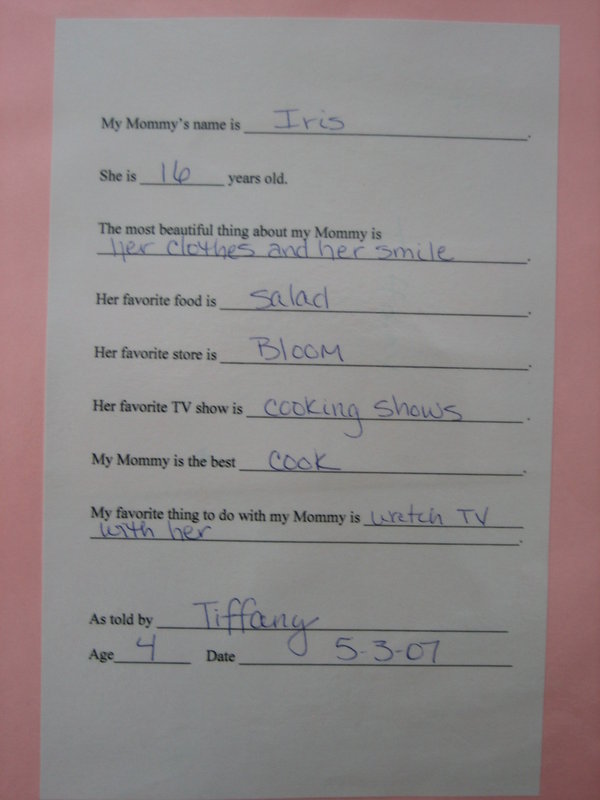 My Mommy's name is Iris.
She is 16 years old.
The most beautiful thing about my Mommy is
her clothes and her smile.
Her favorite food is salad.
Her favorite store is BLOOM.
Her favorite TV show is cooking shows.
My Mommy is the best cook.
My favorite thing to do with my Mommy is watch TV
with her.
As told by Tiffany
Age 4 Date 5-3-07